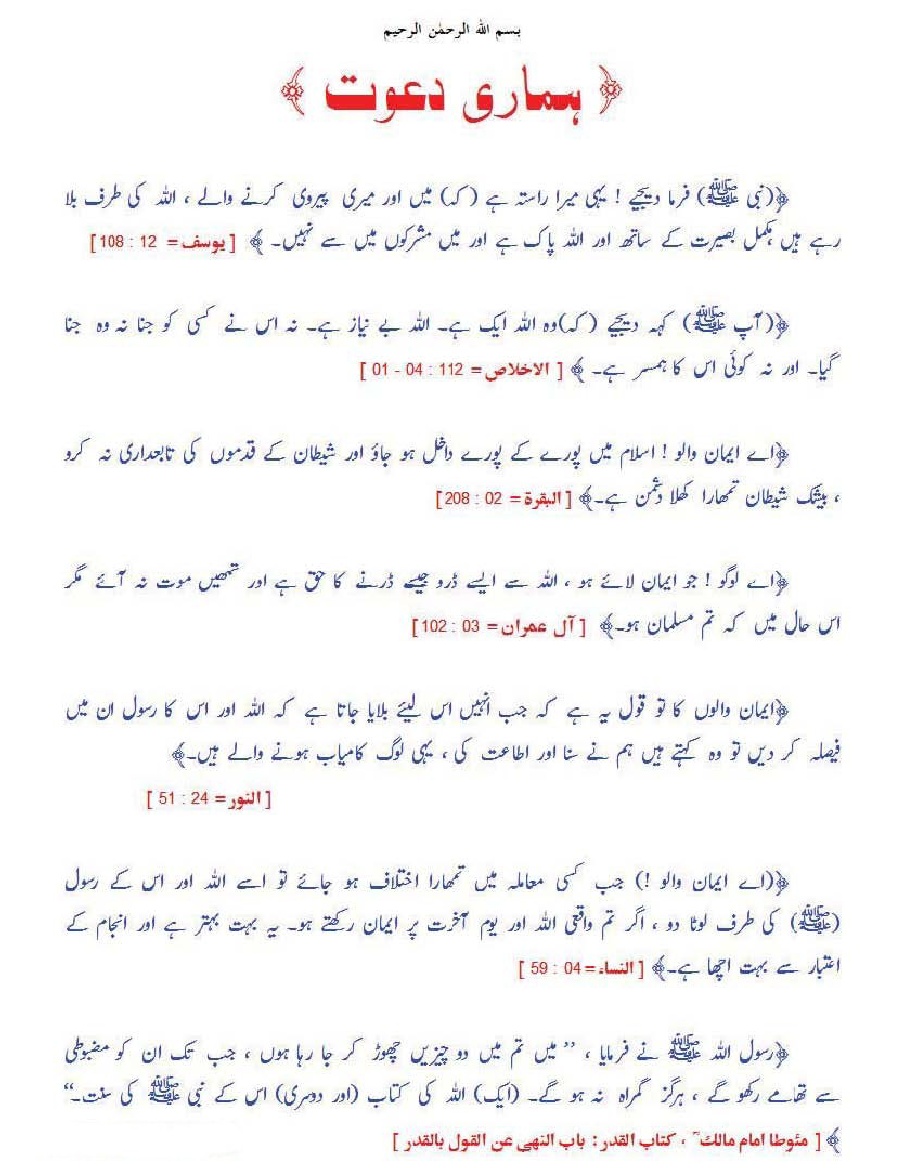 بسم اللہ الرحمٰن الرحیم
﴿ ہماری دعوت ﴾
﴿(نبی ﷺ) فرما دیجیے ! یہی میرا راستہ ہے ( کہ) میں اور میری پیروی کرنے والے ، اللہ کی طرف بلا
رہے ہیں مکمل بصیرت کے ساتھ اور اللہ پاک ہے اور میں مشرکوں میں سے نہیں۔ ﴾ [ یوسف = 12 : 108 ]
﴿( آپ ﷺ) کہہ دیجیے ( کہ)وہ اللہ ایک ہے۔ اللہ بے نیاز ہے۔ نہ اس نے کسی کو جنا نہ وہ جنا
گیا۔ اور نہ کوئی اس کا ہمسر ہے۔ ﴾ [ الاخلاص = 112 : 04 - 01 ]
﴿اے ایمان والو ! اسلام میں پورے کے پورے داخل ہو جاؤ اور شیطان کے قدموں کی تابعداری نہ کرو
، بیشک شیطان تمھارا کھلا دشمن ہے۔﴾ [ البقرۃ = 02 : 208 ]
﴿اے لوگو ! جو ایمان لائے ہو ، اللہ سے ایسے ڈرو جیسے ڈرنے کا حق ہے اور تمھیں موت نہ آئے مگر
اس حال میں کہ تم مسلمان ہو۔﴾ [ آل عمران = 03 : 102 ]
﴿ایمان والوں کا تو قول یہ ہے کہ جب انہیں اس لیئے بلایا جاتا ہے کہ اللہ اور اس کا رسول ان میں
فیصلہ کر دیں تو وہ کہتے ہیں ہم نے سنا اور اطاعت کی ، یہی لوگ کامیاب ہونے والے ہیں۔﴾
[ النور = 24 : 51 ]
﴿(اے ایمان والو !) جب کسی معاملہ میں تمھارا اختلاف ہو جائے تو اسے اللہ اور اس کے رسول
(ﷺ) کی طرف لوٹا دو ، اگر تم واقعی اللہ اور یوم آخرت پر ایمان رکھتے ہو۔ یہ بہت بہتر ہے اور انجام کے
اعتبار سے بہت اچھا ہے۔﴾ [ النساء = 04 : 59 ]
﴿رسول اللہ ﷺ نے فرمایا ، ’’ میں تم میں دو چیزیں چھوڑ کر جا رہا ہوں ، جب تک ان کو مضبوطی
سے تھامے رکھو گے ، ہرگز گمراہ نہ ہو گے۔ (ایک) اللہ کی کتاب (اور دوسری) اس کے نبی ﷺ کی سنت۔‘‘
﴾ [ مئوطا امام مالکؒ ، کتاب القدر : باب النھی عن القول بالقدر ]